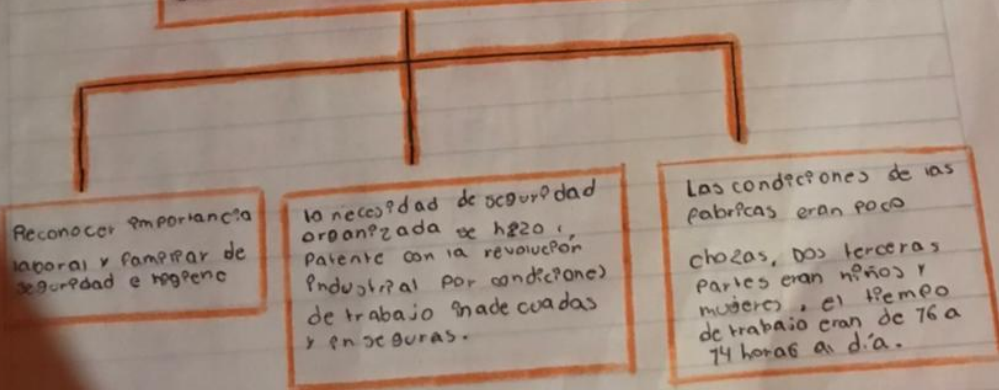 Reconocer importancia
laboral y familiar de
seguridad e higiene
la necesidad de seguridad
organizada se hizo
patente con la revolución
industrial por condiciones
de trabajo inadecuadas
y inseguras.
Las condiciones de las
fabricas eran poco
chozas, Dos terceras
partes eran niños y
mujeres, el tiempo
de trabajo eran de 16 a
14 horas al día.